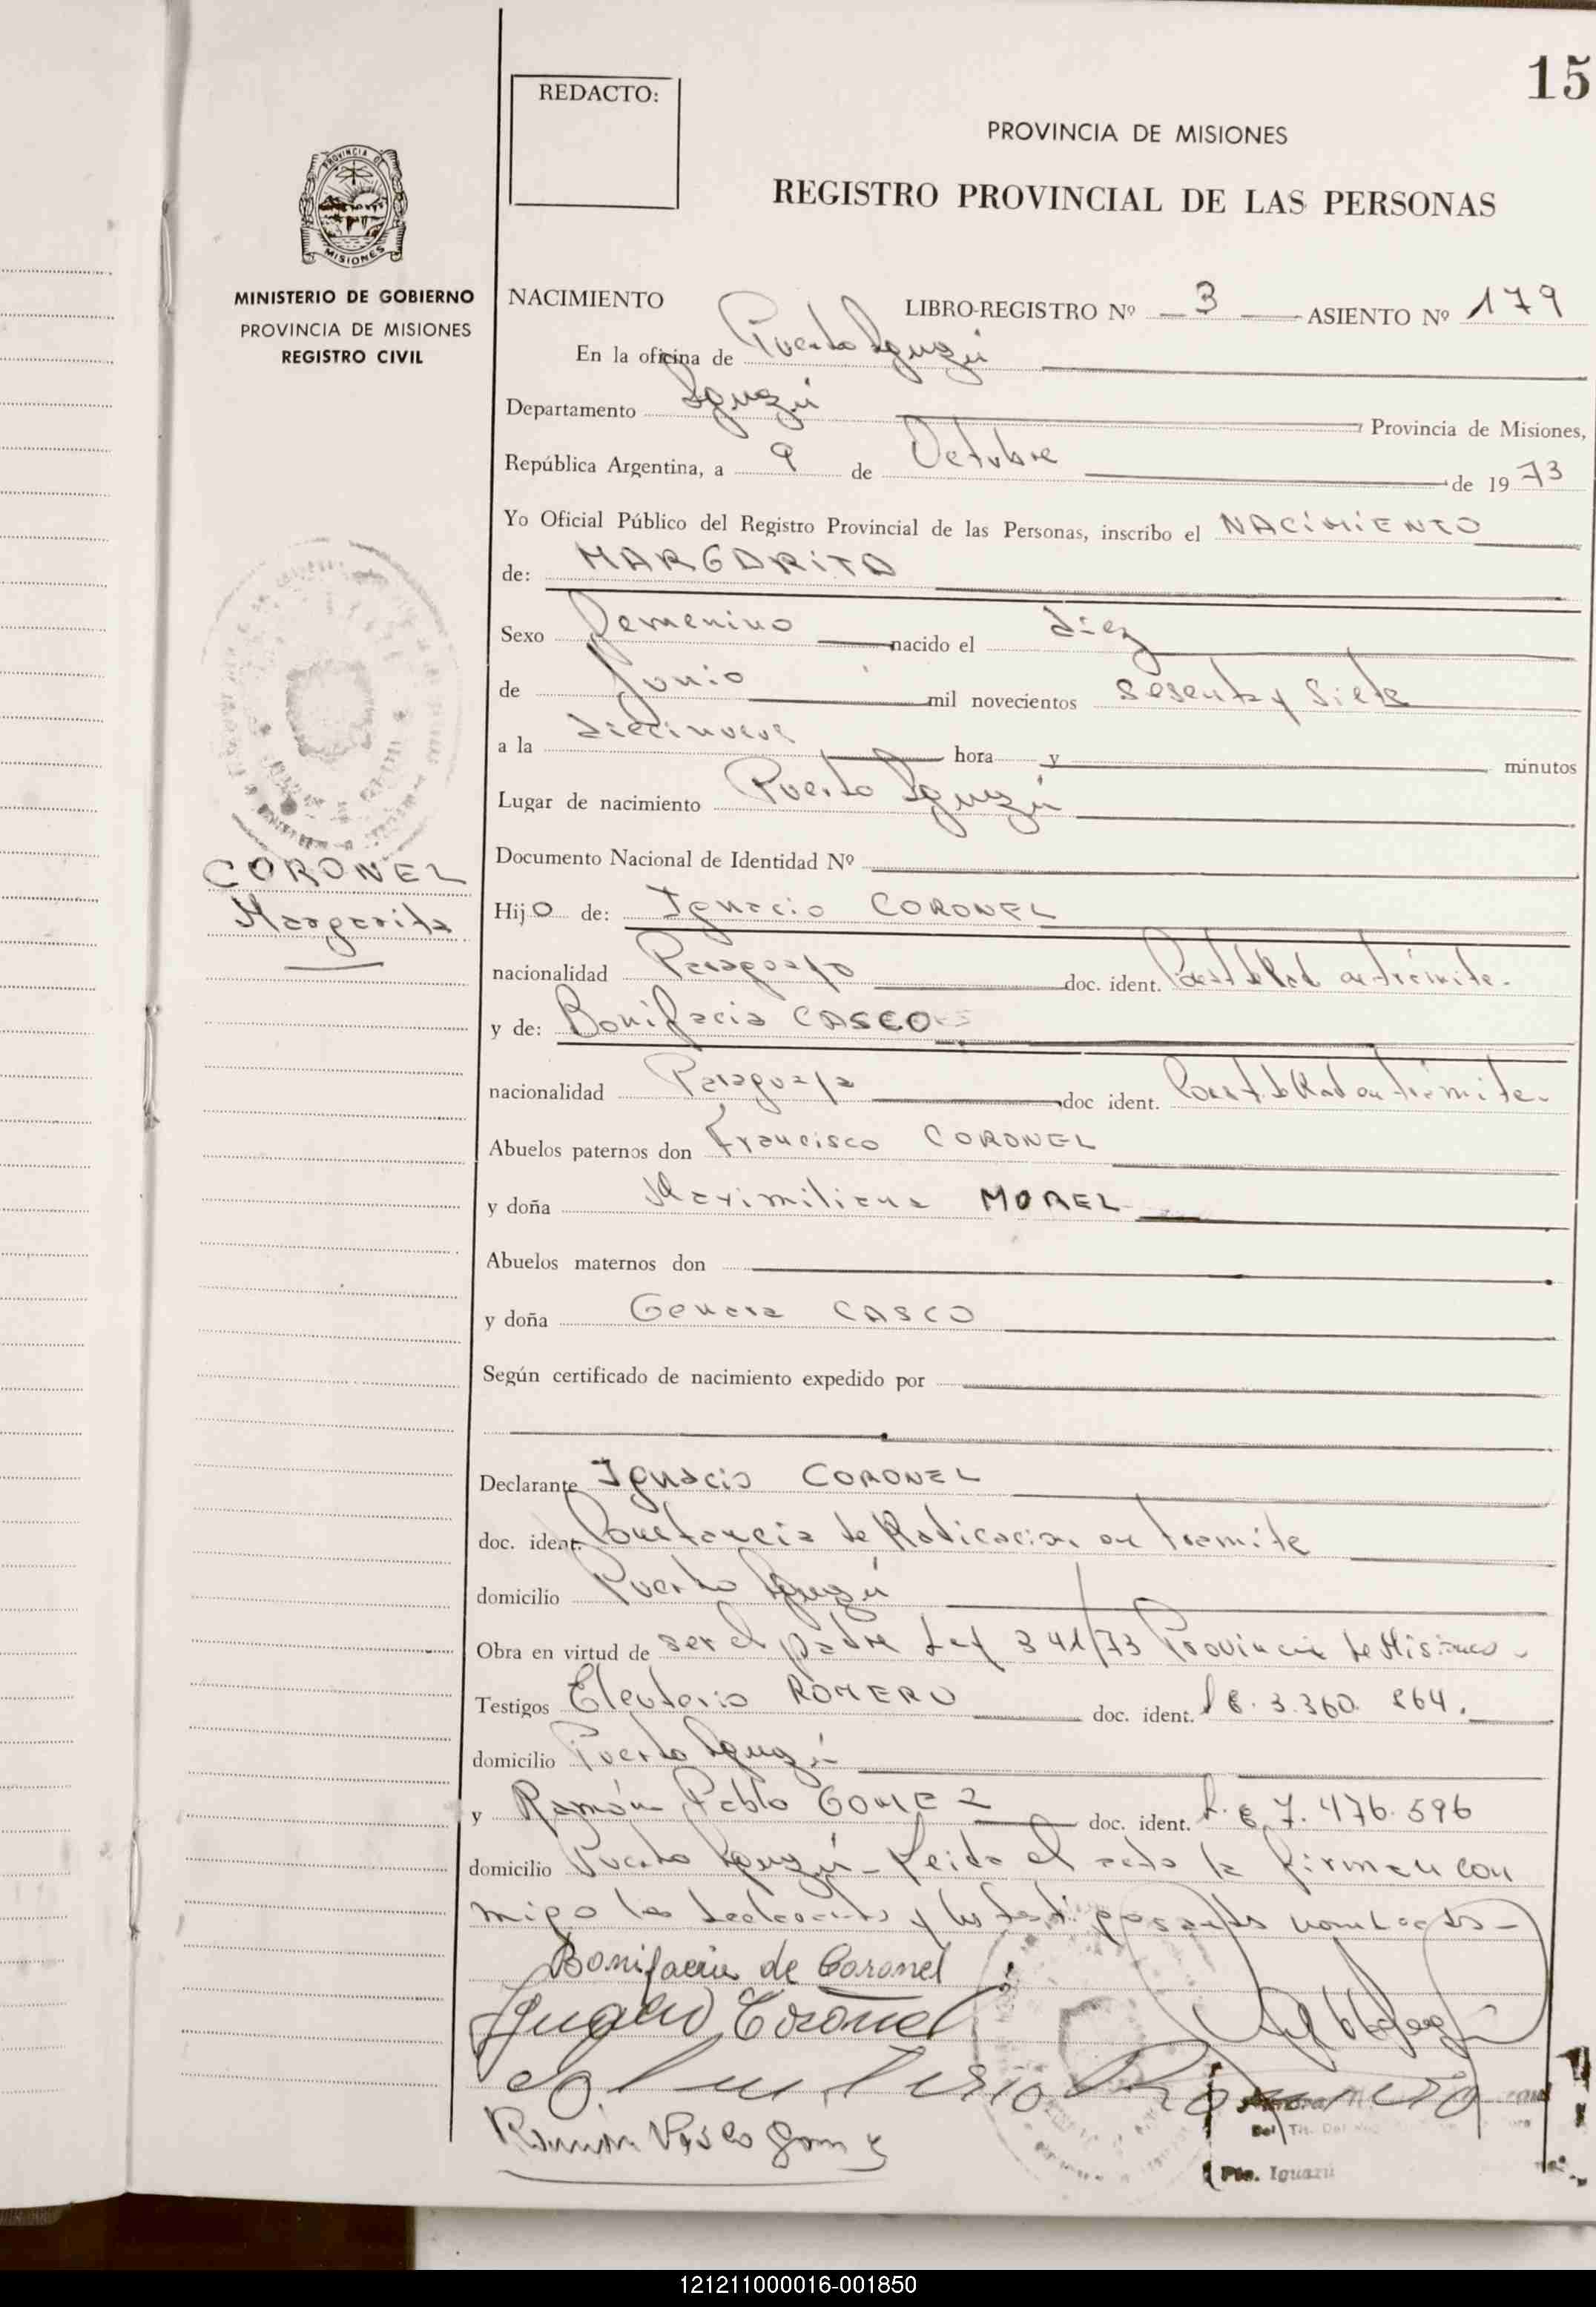 15
REDACTO:
PROVINCIA DE MISIONES
REGISTRO PROVINCIAL DE LAS PERSONAS
PROVINCIA DE
MISIONES
MINISTERIO DE GOBIERNO
PROVINCIA DE MISIONES
REGISTRO CIVIL
CORONEL
Margarita
NACIMIENTO LIBRO-REGISTRO Nº 3 ASIENTO Nº 179
En la oficina de Puerto Iguazú
Departamento Iguazú Provincia de Misiones,
República Argentina, a 9 de Octubre de 1973
Yo Oficial Público del Registro Provincial de las Personas, inscribo el NACIMIENTO
de: MARGARITA
Sexo Femenino nacido el diez
de Junio mil novecientos sesenta y siete
a la diecinueve hora y minutos
Lugar de nacimiento Puerto Iguazú
Documento Nacional de Identidad Nº
Hijo de: Ignacio CORONEL
nacionalidad Paraguayo doc. ident. Const de Rad en trámite.
y de: Bonifacia CASCO
nacionalidad Paraguaya doc ident. Const. de Rad en trámite.
Abuelos paternos don Francisco CORONEL
y doña Maximiliana MOREL
Abuelos maternos don
y doña Genara CASCO
Según certificado de nacimiento expedido por
Declarante Ignacio CORONEL
doc. ident. Constancia de Radicacion en tramite
domicilio Puerto Iguazú
Obra en virtud de ser el padre Ley 341/73 Provincia de Misiones
Testigos Eleuterio ROMERO doc. ident. 3.360.864.
domicilio Puerto Iguazú
y Ramón Pablo GOMEZ doc. ident. L.E 7.476.596
domicilio Puerto Iguazú - Leida el acta la firman con
migo los declarantes y los testigos antes nombrados -
Bonifacia de Coronel
Ignacio Coronel
Eleuterio Romero
Ramón Pablo Gomez
Pto. Iguazú
121211000016-001850